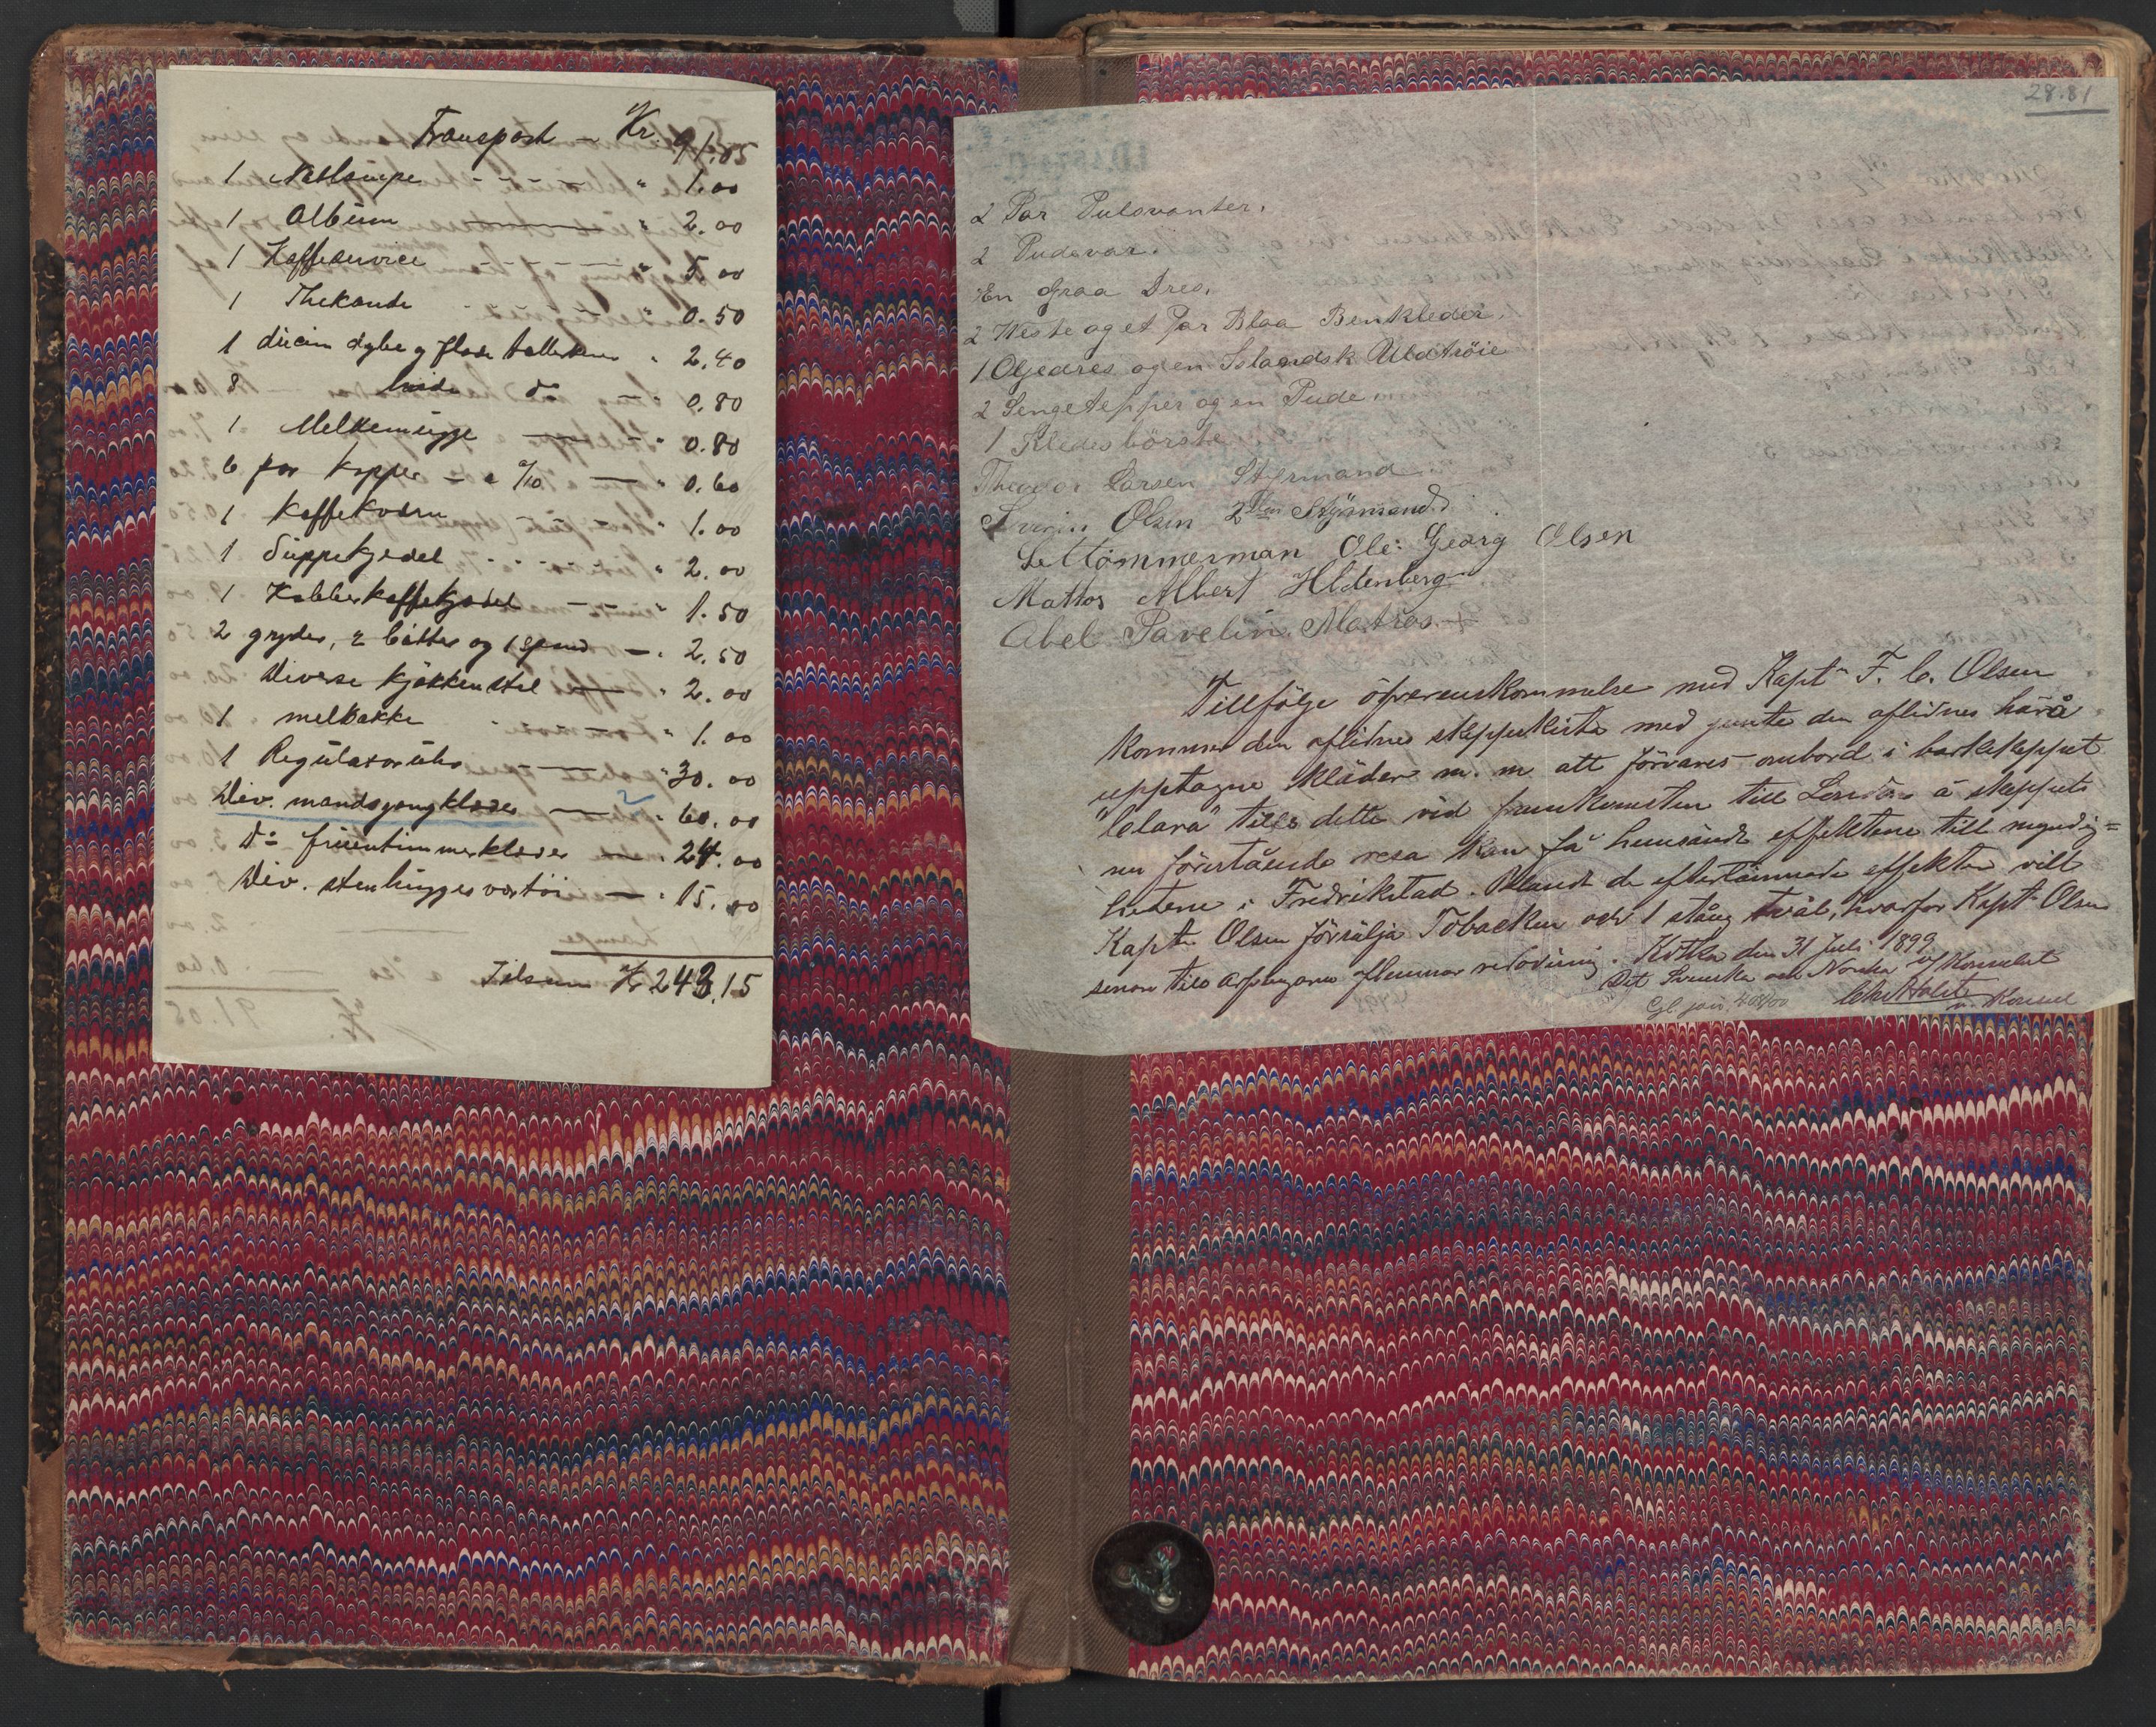 Transport - Kr. 91.05
1 Natlampe - - - - " 1.00
1 Album " 2.00
1 Kaffeservice - - - - " 5.00
1 Thekande " 0.50
1 ducin dybe og flade tallerkner " 2.40
8 do 0.80
1 Melkemugge - " 0.80
6 par kopper - a /10 - " 0.60
1 Kaffekværn - - " 1.00
1 Suppekjedel - - - - " 2.00
1 Kobberkaffekjedel - - " 1.50
2 gryder, 2 bøtter og 1 spand - " 2.50
Diverse kjøkkenstel - " 2.00
1 melbakke " 1.00
1 Regulatoruhr - - " 30.00
Div. mandsgangklæder - " 60.00
Do fruentimmerklæder - " 24.00
Div. stenhuggerværktøi - " 15.00
Tilsam Kr 243.15
28.81
2 Par Pulsvanter.
2 Pudevar.
En Graa Dres.
2 Veste og et Par Blaa Benkleder.
1 Oljedres og en Islandsk Uldtröie
2 Sengetepper og en Pude
1 Kledesbörste
Theodor Larsen Styrmand
Severin Olsen 2den Styrmand
Ole Georg Olsen
Matros Albert Hldenberg
Abel Pavelin Matros
Tillfölje öfverenskommelse med Kapt F. C. Olsen
kommer den aflidnes skeppskista med jemte den aflidnes härå
upptagne kläder m. m att förvares ombord i barkskeppet
"Clara" tills dette vid framkomsten till London å skeppets
nu förestående resa kan få hemsända effektene till myndig=
hetene i Fredrikstad. Blandt de efterlämnade effekter vill
Kapt Olsen försälja Tobacken och 1 stång tvål, hvarfor Kapt Olsen
senare till arfvingarne aflemnar redovisning. Kotka den 31 Juli 1899
Det Svenska och Norska v/ Konsulat
Holst
v. Konsul